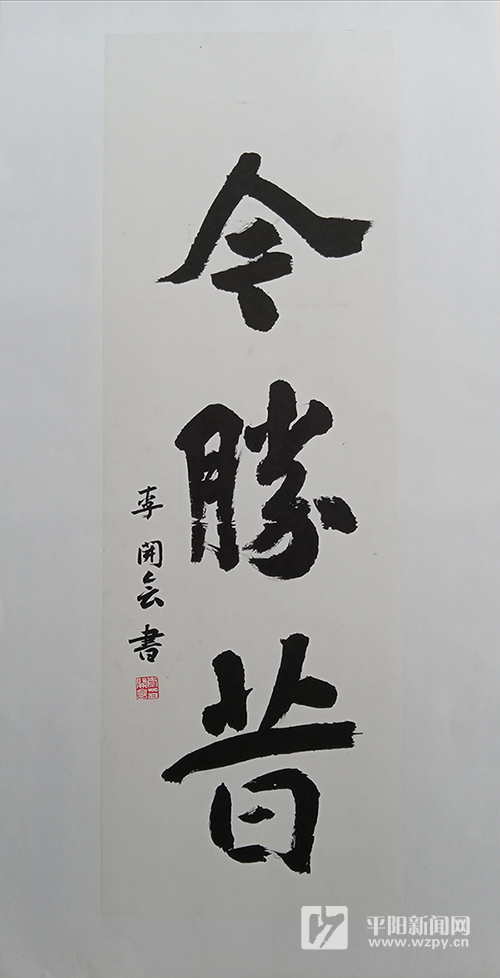 今勝昔
李開会書
平阳新闻网
www.wzpy.cn